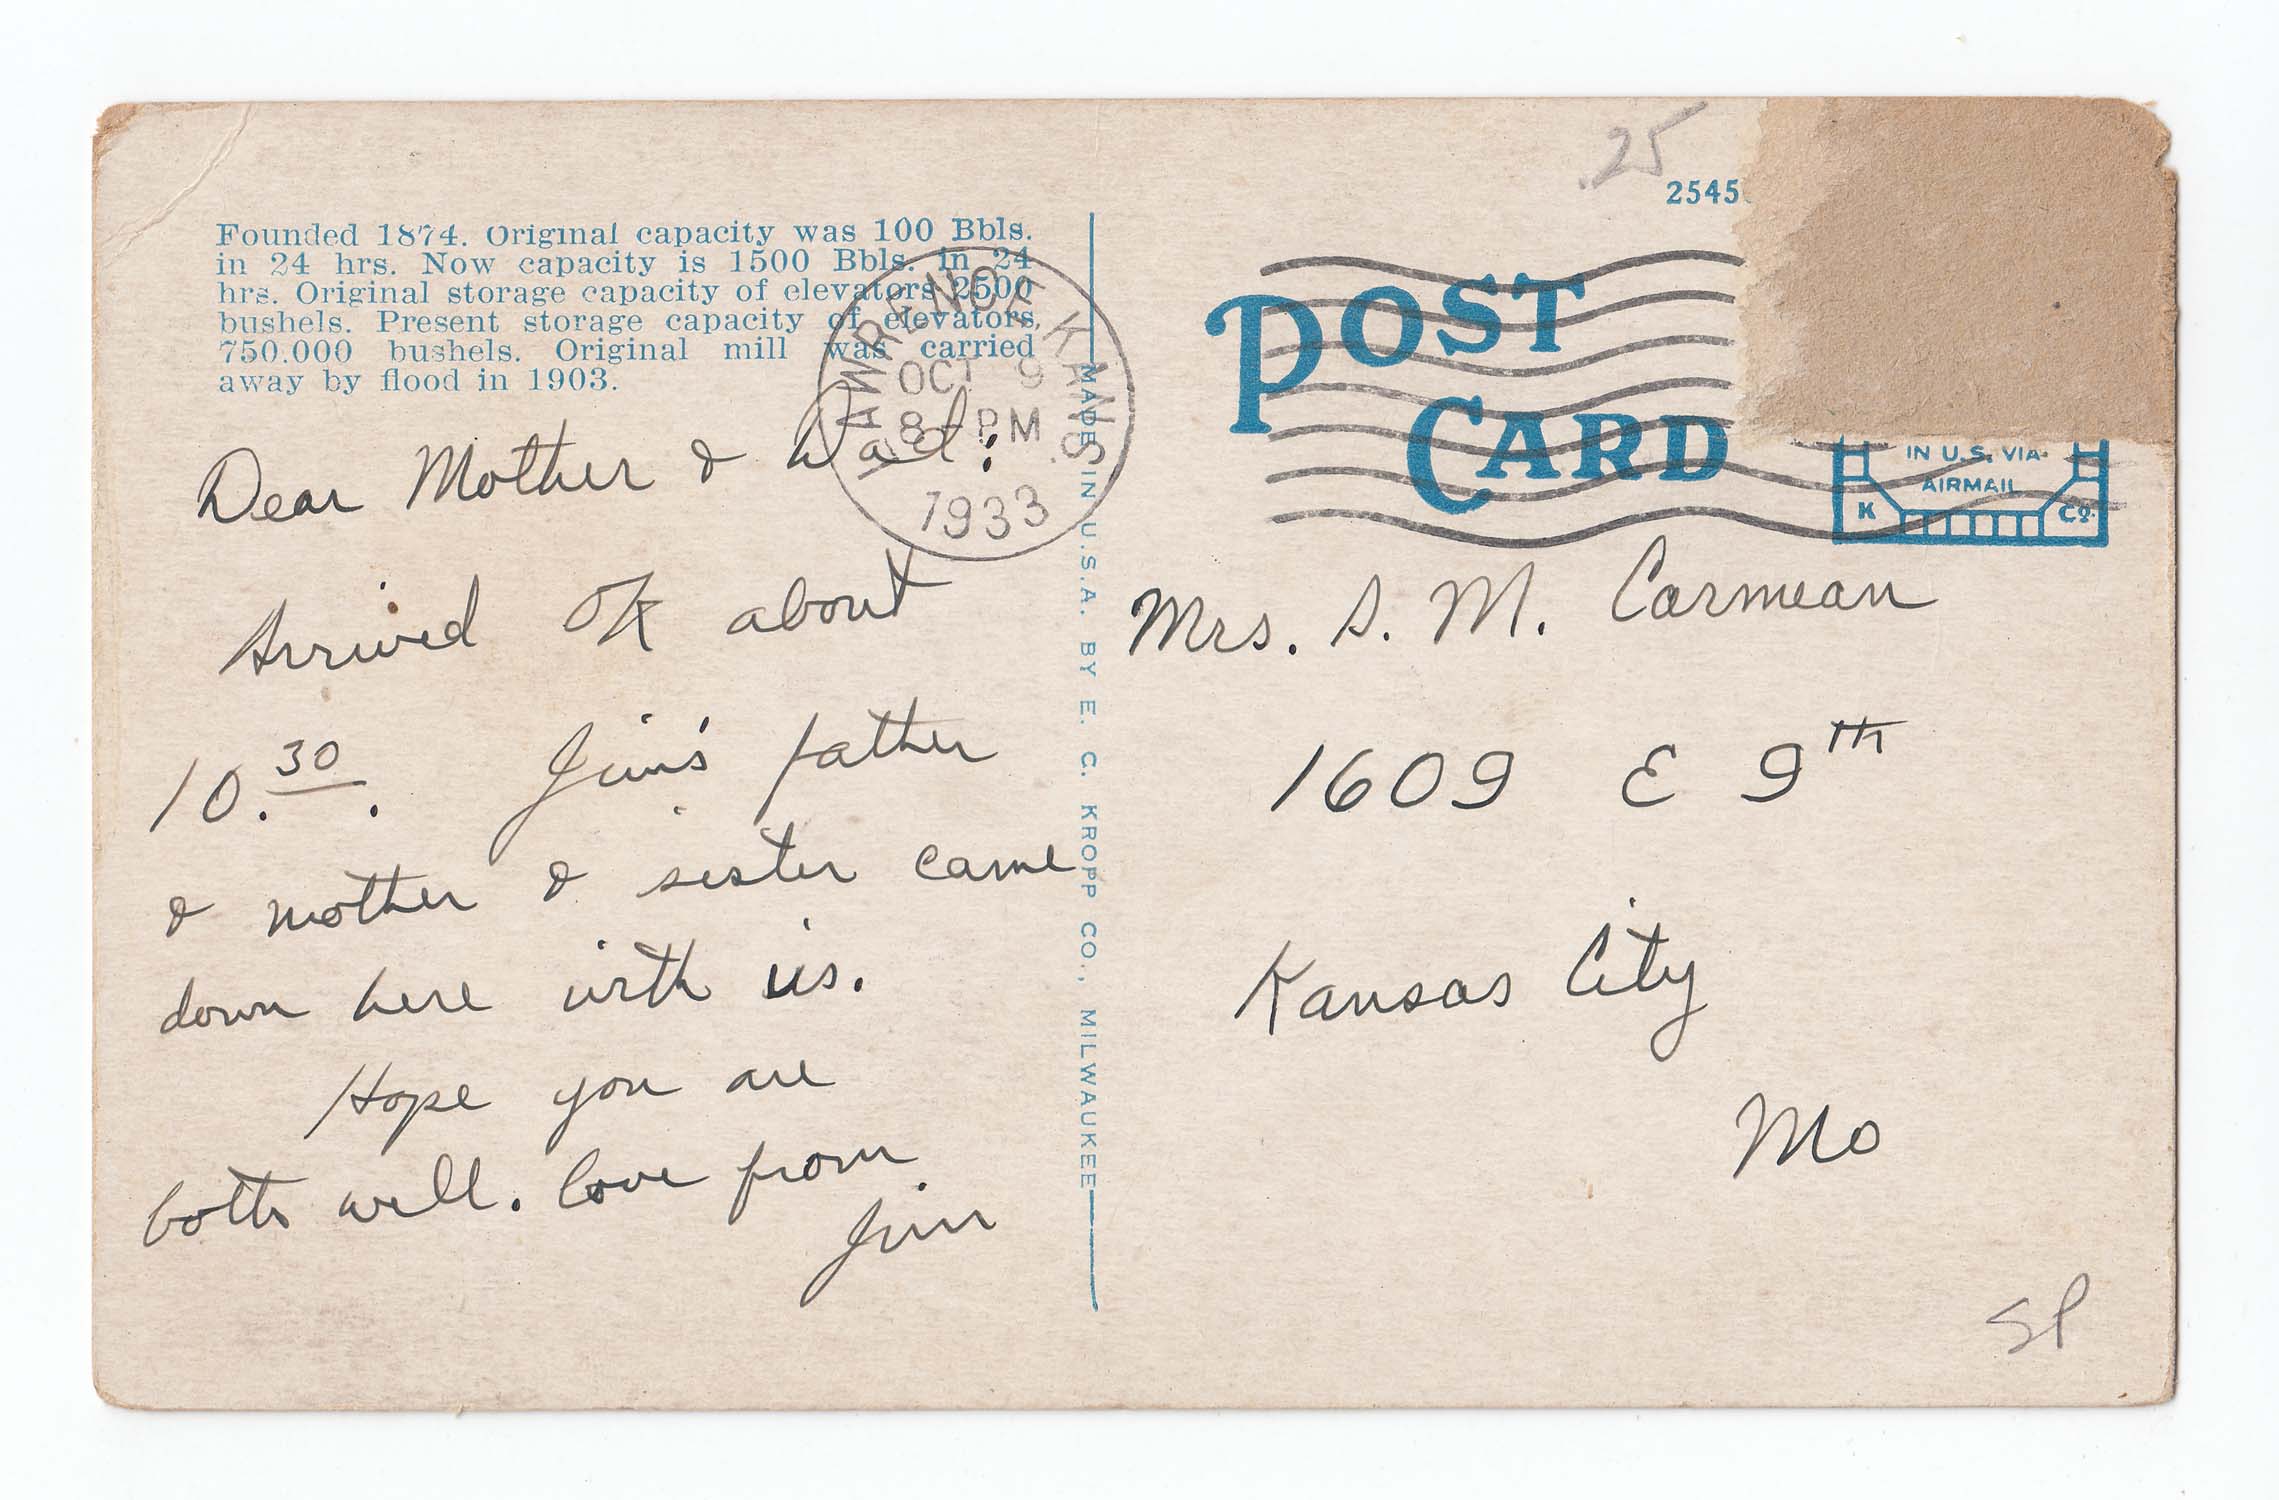 .25
2545
Founded 1874. Original capacity was 100 Bbls.
in 24 hrs. Now capacity is 1500 Bbls. in 24
hrs. Original storage capacity of elevators 2500
bushels. Present storage capacity of elevators,
750.000 bushels. Original mill was carried
away by flood in 1903.
LAWRENCE KANS.
OCT 9
8 PM
1933
POST
CARD
IN U.S. VIA
AIRMAIL
K Co.
MADE IN U.S.A. BY E. C. KROPP CO., MILWAUKEE
Dear Mother & Dad:
Arrived OK about
10.30. Jim's father
& mother & sister came
down here with us.
Hope you are
both well. Love from
Jim
Mrs. S. M. Carmean
1609 E 9th
Kansas City
Mo
SP